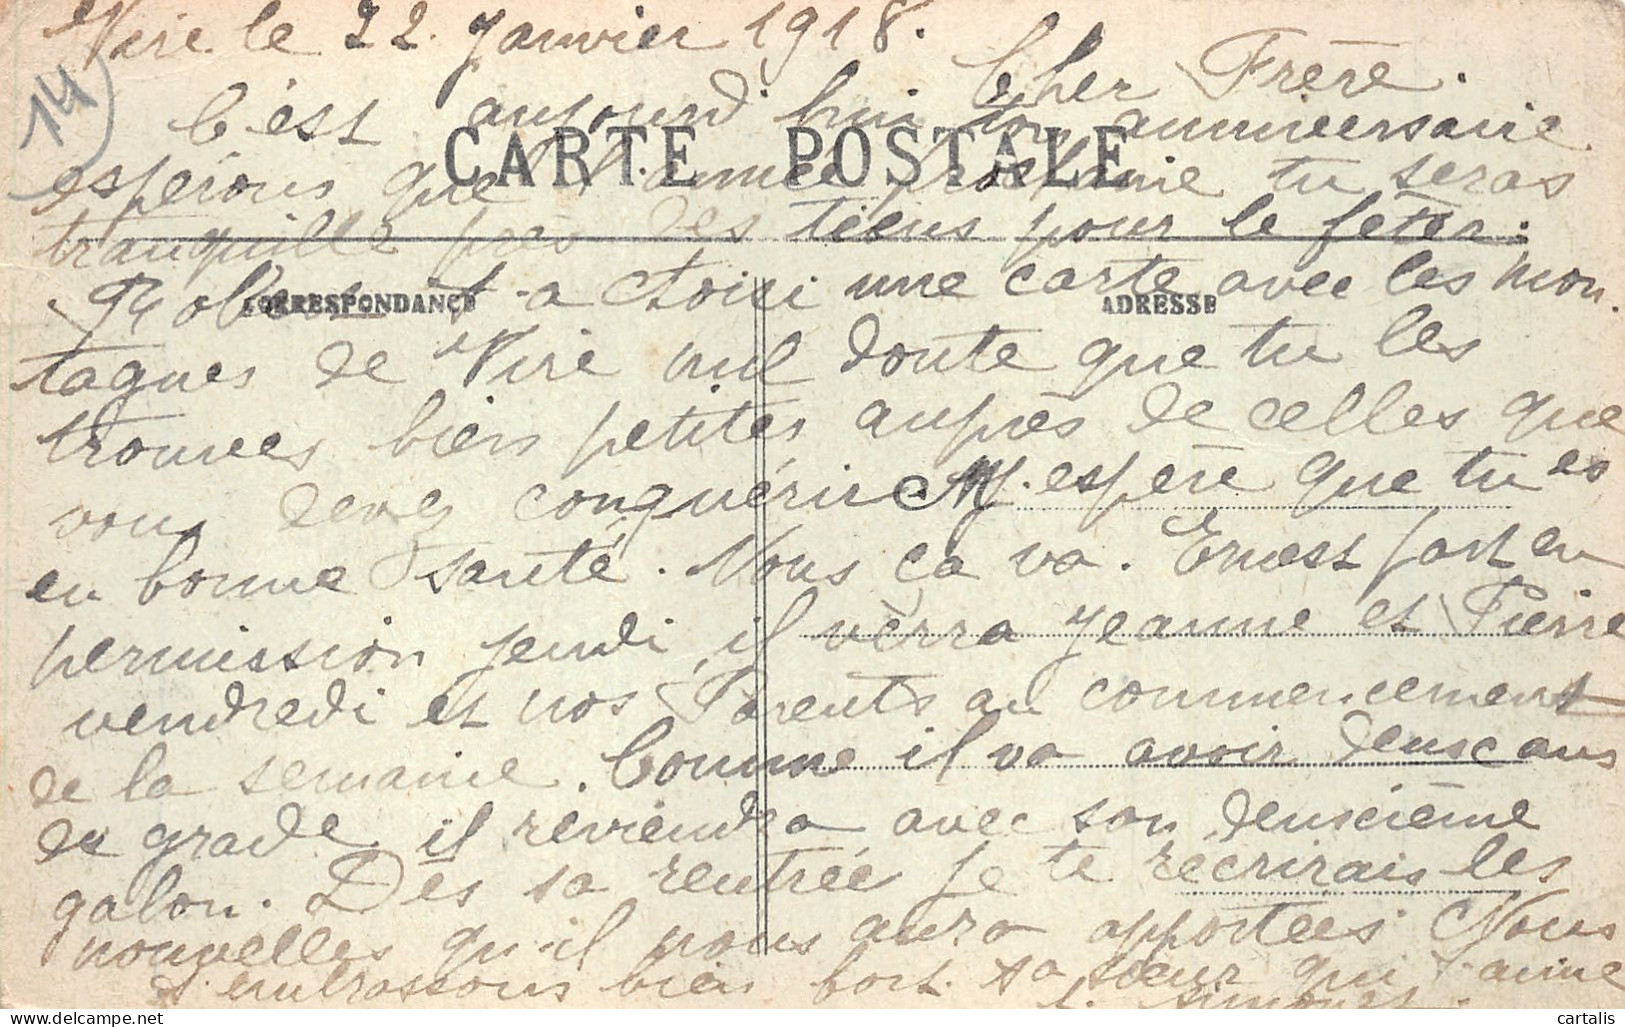 Vire le 22 Janvier 1918.
14
Cher Frère.
C'est aujourd'hui ton anniversaire
CARTE POSTALE
espérons que l'année prochaine tu seras
tranquille près des tiens pour le fêter.
CORRESPONDANCE
ADRESSE
Robert t-a choisi une carte avec les mon.
tagnes de Vire nul doute que tu les
trouvees bien petites auprès de celles que
vous devez conquérir. J'espère que tu es
en bonne santé. Nous ça va. Ernest part en
permission jeudi, il verra Jeanne et Pierre
vendredi et nos Parents au commencement
de la semaine. Comme il va avoir deux ans
de grade il reviendra avec son deuxième
galon. Dès sa rentrée je te récrirais les
nouvelles qu'il nous aura apportées. Nous
t'embrassons bien fort. ta sœur qui t'aime